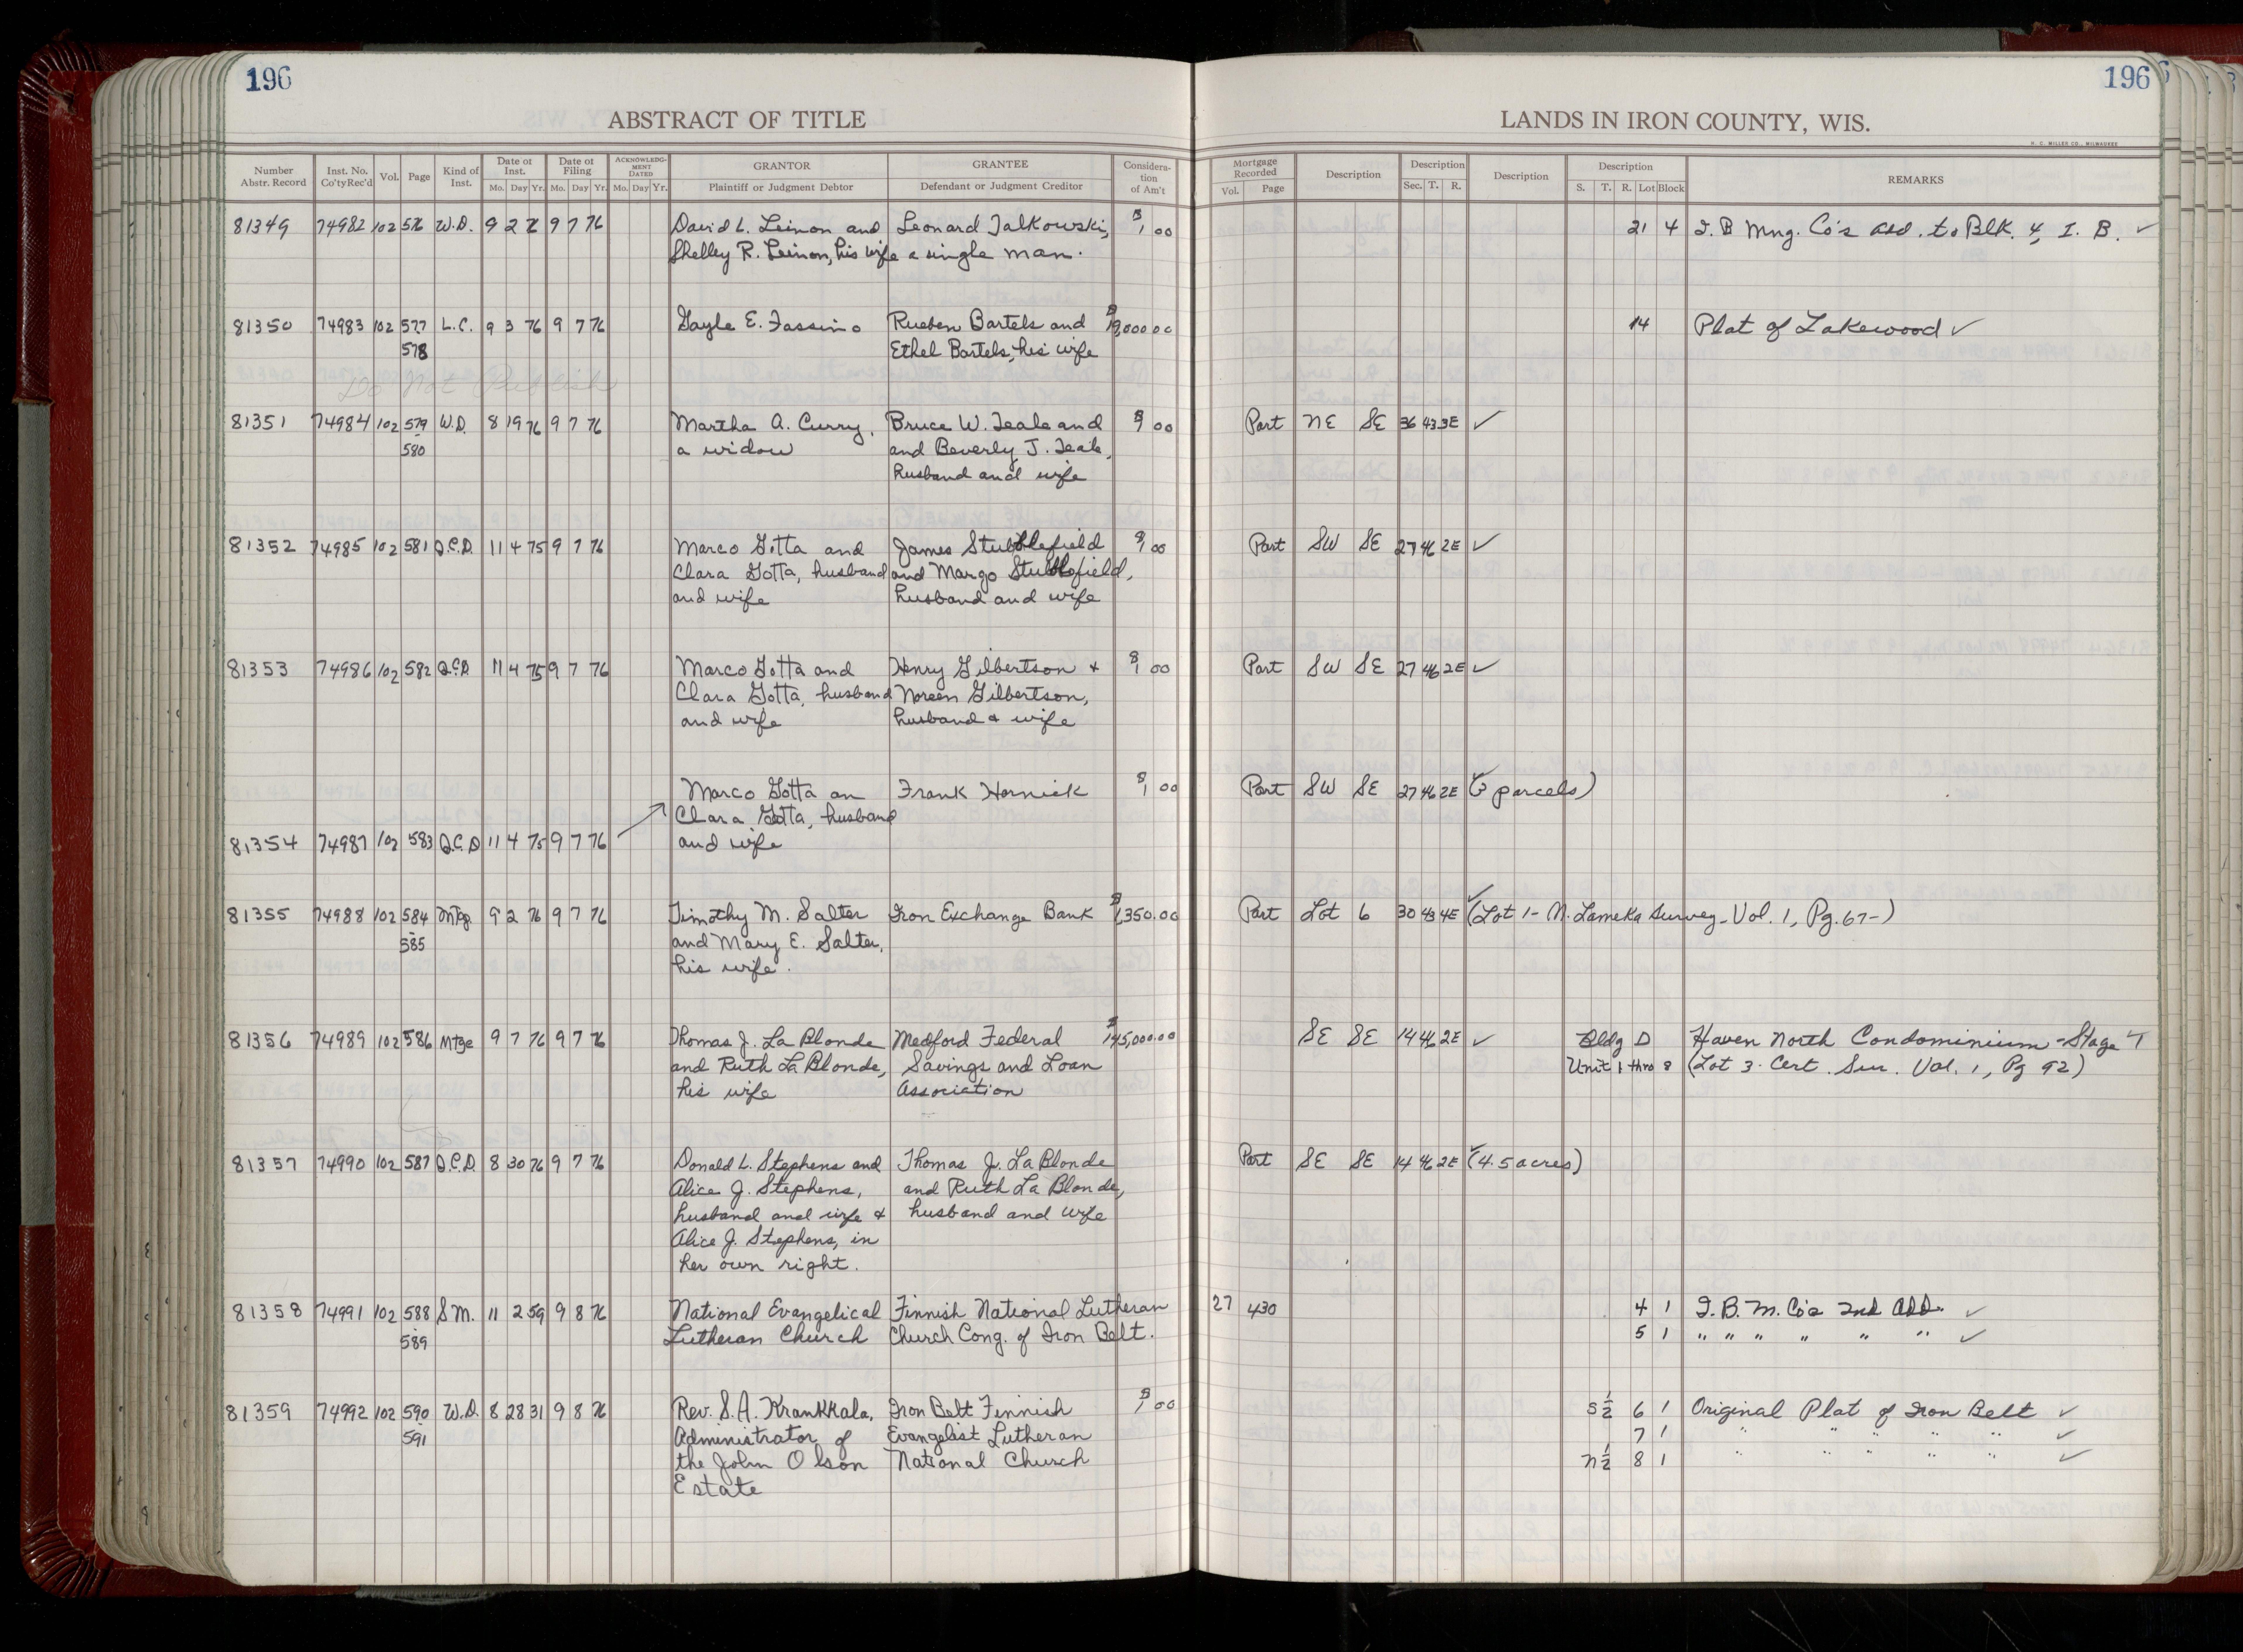 196
196
ABSTRACT OF TITLE
LANDS IN IRON COUNTY, WIS.
H. C. MILLER CO., MILWAUKEE
Number Abstr. Record
Inst. No. Co'tyRec'd
Vol.
Page
Kind of Inst.
Date of Inst.
Mo. Day Yr.
Date of Filing
Mo. Day Yr.
ACKNOWLEDGMENT DATED
Mo. Day Yr.
GRANTOR
Plaintiff or Judgment Debtor
GRANTEE
Defendant or Judgment Creditor
Consideration of Am't
Mortgage Recorded
Vol. Page
Description
Description
Sec. T. R.
Description
Description
S. T. R. Lot Block
REMARKS
81349 74982 102 576 W.D. 9 2 76 9 7 76 David L. Leinon and Leonard Talkowski, $1 00 21 4 I. B Mng. Co's add. to Blk. 4, I. B. ✓
Shelley R. Leinon, his wife a single man.
81350 74983 102 577 L.C. 9 3 76 9 7 76 Gayle E. Fassino Rueben Bartels and $19,000 00 14 Plat of Lakewood ✓
578 Ethel Bartels, his wife
Do Not Publish
81351 74984 102 579 W.D. 8 19 76 9 7 76 Martha A. Curry, Bruce W. Teale and $1 00 Part NE SE 36 43 3E ✓
580 a widow and Beverly J. Teale,
husband and wife
81352 74985 102 581 Q.C.D. 11 4 75 9 7 76 Marco Gotta and James Stubblefield $1 00 Part SW SE 27 46 2E ✓
Clara Gotta, husband and Margo Stubblefield,
and wife husband and wife
81353 74986 102 582 Q.C.D. 11 4 75 9 7 76 Marco Gotta and Henry Gilbertson + $1 00 Part SW SE 27 46 2E ✓
Clara Gotta, husband Noreen Gilbertson,
and wife husband & wife
Marco Gotta an Frank Hornick $1 00 Part SW SE 27 46 2E ✓ (3 parcels)
Clara Gotta, husband
81354 74987 102 583 Q.C.D 11 4 75 9 7 76 and wife
81355 74988 102 584 Mtg. 9 2 76 9 7 76 Timothy M. Salter Iron Exchange Bank $1,350.00 Part Lot 6 30 43 4E ✓ (Lot 1 - N. Lameka Survey - Vol. 1, Pg. 67 -)
585 and Mary E. Salter,
his wife.
81356 74989 102 586 Mtge 9 7 76 9 7 76 Thomas J. La Blonde Medford Federal $145,000.00 SE SE 14 46 2E ✓ Bldg D Haven North Condominium - Stage
and Ruth La Blonde, Savings and Loan Unit 1 thro 8 (Lot 3. Cert. Sur. Vol. 1, Pg 92)
his wife Association
81357 74990 102 587 Q.C.D. 8 30 76 9 7 76 Donald L. Stephens and Thomas J. La Blonde Part SE SE 14 46 2E ✓ (4.5 acres)
Alice J. Stephens, and Ruth La Blonde,
husband and wife & husband and wife
Alice J. Stephens, in
her own right.
81358 74991 102 588 S.M. 11 2 59 9 8 76 National Evangelical Finnish National Lutheran 27 430 4 1 I. B. M. Co's 2nd Add. ✓
589 Lutheran Church Church Cong. of Iron Belt. 5 1 " " " " " " ✓
81359 74992 102 590 W.D. 8 28 31 9 8 76 Rev. S.A. Krankkala, Iron Belt Finnish $1 00 S½ 6 1 Original Plat of Iron Belt ✓
591 Administrator of Evangelist Lutheran 7 1 " " " " " ✓
the John Olson National Church N½ 8 1 " " " " " ✓
Estate